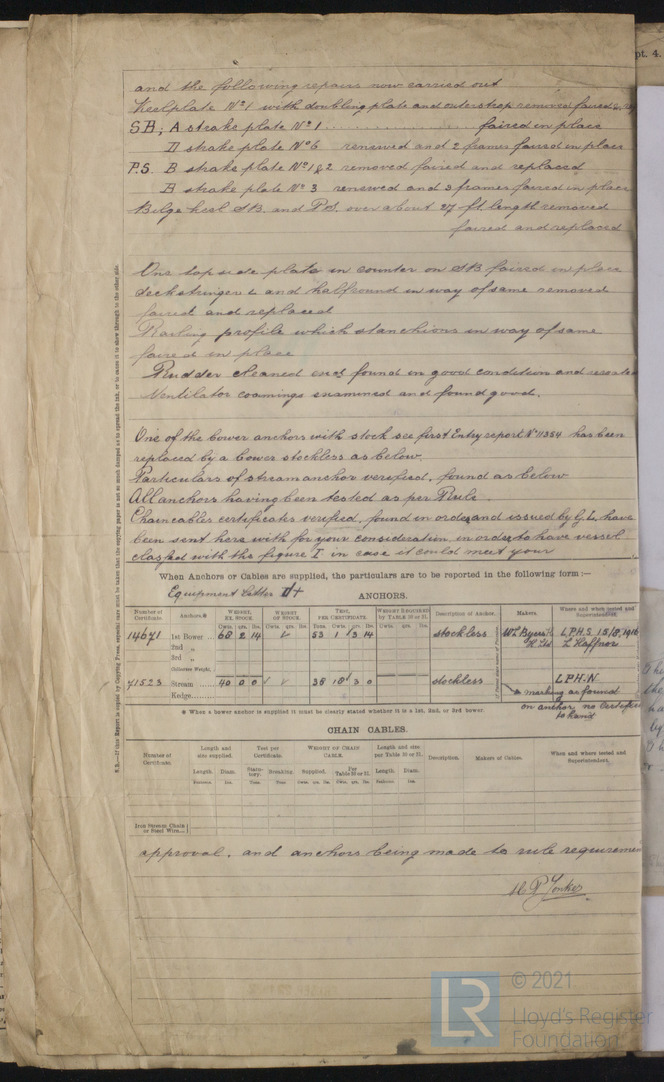 pt. 4.
and the following repairs now carried out
Keelplate No 1 with doubling plate and outerstrap removed faired &
SB; A strake plate No 1 . . . . . . . . . . faired in place
D strake plate No 6 renewed and 2 frames faired in place
P.S. B strake plate No 1 & 2 removed faired and replaced
B strake plate No 3 renewed and 3 frames faired in place
Bilge keel SB. and P.S. over about 27 ft length removed
faired and replaced
One top side plate in counter on SB faired in place
deckstringer L and halfround in way of same removed
faired and replaced
Railing profile which stanchions in way of same
faired in place
Rudder cleaned and found in good condition and
Ventilator coamings examined and found good.
One of the bower anchors with stock see first Entry report No 11384 has been
replaced by a bower stockless as below.
Particulars of stream anchor verified, found as below
All anchors having been tested as per Rule.
Chain cables certificates verified, found in order and issued by G.L, have
been sent here with for your consideration in order to have vessel
classed with the figure 1 in case it could meet your
When Anchors or Cables are supplied, the particulars are to be reported in the following form :—
Equipment Letter
ANCHORS.
Number of Certificate. Anchors.* WEIGHT, EX. STOCK WEIGHT OF STOCK. TEST, PER CERTIFICATE. WEIGHT REQUIRED BY TABLE 30 or 31. Description of Anchor. Makers. Where and when tested and Superintendent.
Cwts. qrs. lbs. Cwts. qrs. lbs. Tons. Cwt. qrs. lbs. Cwts. qrs. lbs.
14671 1st Bower .. 68 2 14 53 1 3 14 stockless W.L. Byers & Co Ltd L.P.H.S. 15/8/1916
2nd „ L Haffner
3rd „
Collective Weight.
71523 Stream 40 0 0 38 18 3 0 stockless L.P.H.N
Kedge as marking as found on anchor no Certificate to hand
* When a bower anchor is supplied it must be clearly stated whether it is a 1st, 2nd, or 3rd bower.
CHAIN CABLES.
Number of Certificate. Length and size supplied. Test per Certificate. WEIGHT OF CHAIN CABLE. Length and size per Table 30 or 31. Description. Makers of Cables. When and where tested and Superintendent.
Length. Diam. Statutory. Breaking. Supplied. Per Table 30 or 31. Length. Diam.
Iron Stream Chain or Steel Wire...
approval, and anchors being made to rule
H P Jonker
© 2021
LR
Lloyd's Register
Foundation